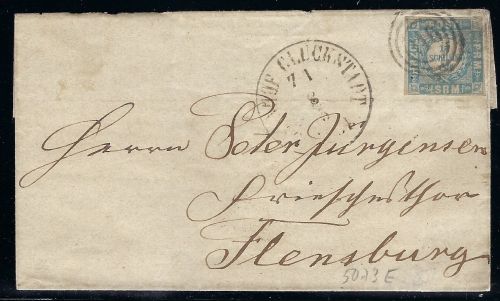 GLÜCKSTADT
7 1
SCHILL
S.R.M.
Herrn Peter Jürgensen
Friesches thor
Flensburg
5073 E